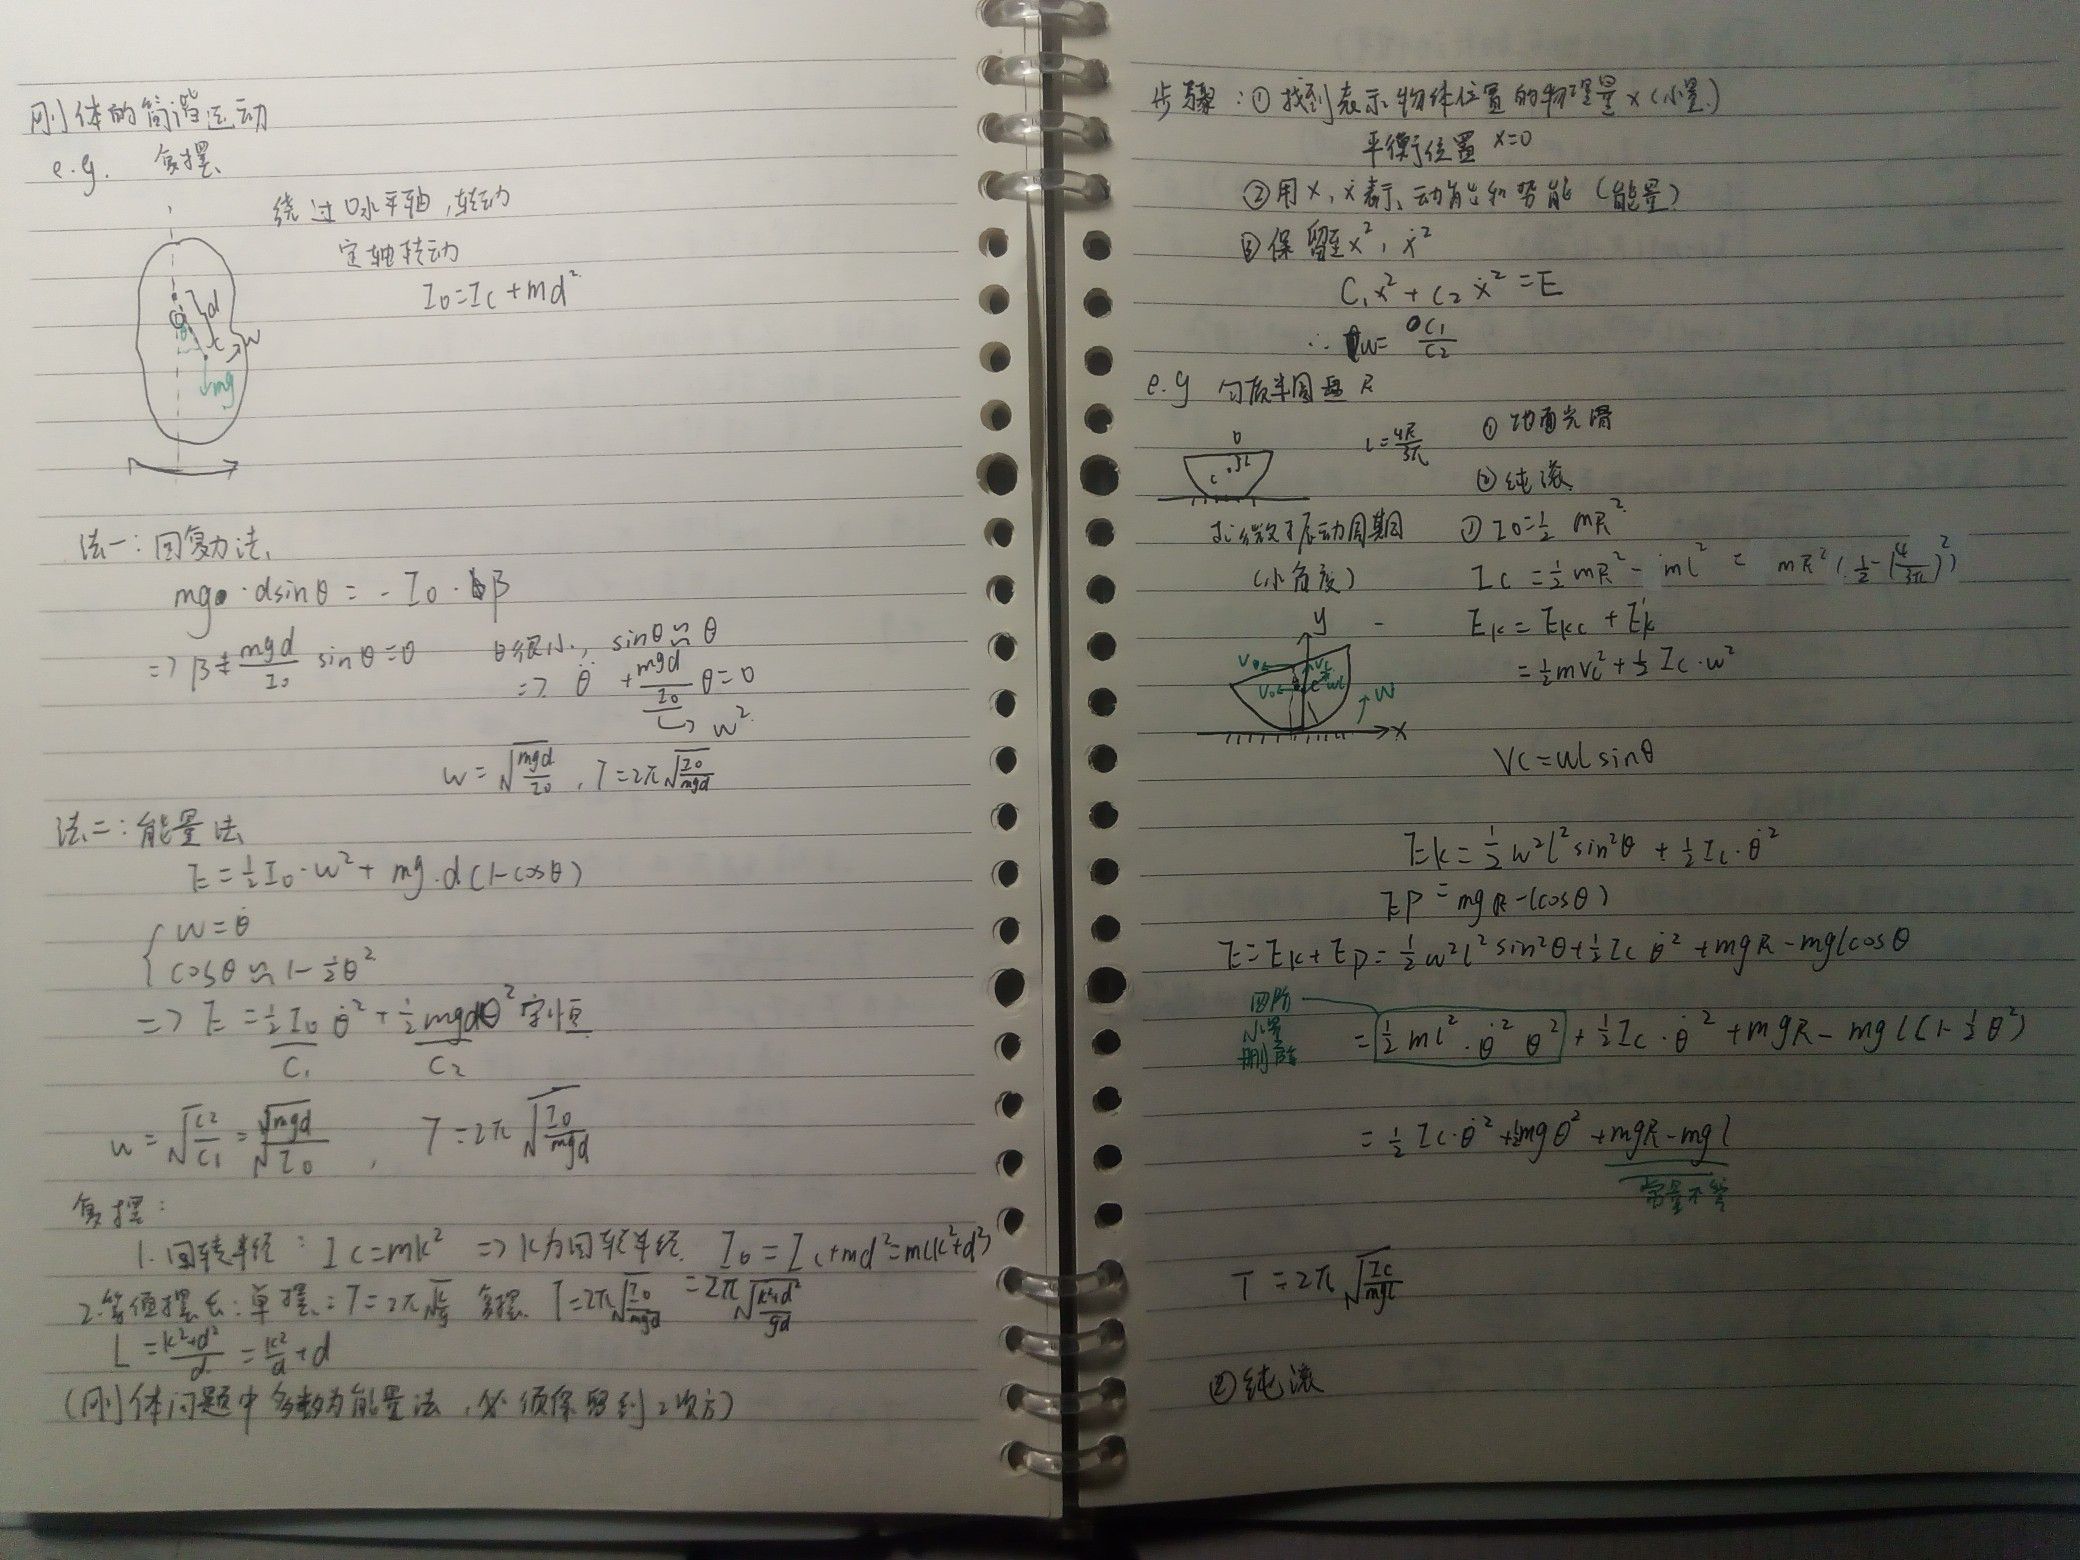 刚体的简谐运动
e.g. 复摆
绕过O水平轴,转动
定轴转动
I₀=Ic+md²
O
d
θ
c
w
mg
法一:回复力法
mg·dsinθ = -I₀·β
=> β+ mgd/I₀ sinθ=0 θ很小, sinθ≈θ
=> θ̈ + mgd/I₀ θ=0
↳ w²
w=√(mgd/I₀), T=2π√(I₀/mgd)
法二:能量法
E=½I₀·w²+mg·d(1-cosθ)
{w=θ̇
cosθ≈1-½θ²
=> E=½I₀θ̇²+½mgdθ²守恒
C₁ C₂
w=√(C₂/C₁)=√mgd/√I₀, T=2π√(I₀/mgd)
复摆:
1.回转半径: Ic=mk² => k为回转半径. I₀=Ic+md²=m(k²+d²)
2.等值摆长:单摆:T=2π√(L/g) 复摆 T=2π√(I₀/mgd) =2π√((k²+d²)/gd)
L=(k²+d²)/d=k²/d+d
(刚体问题中多数为能量法,必须保留到2次方)
步骤:①找到表示物体位置的物理量x(小量)
平衡位置 x=0
②用x,ẋ表示动能和势能(能量)
③保留至x²,ẋ²
C₁x²+C₂ẋ²=E
∴w= C₁/C₂
e.g 匀质半圆盘 R
O
c
l
l=4R/3π
①地面光滑
②纯滚
求微振动周期
(小角度)
① I₀=½mR²
Ic=½mR²-ml²=mR²(½-(4/3π)²)
Ek=Ekc+Ek'
=½mVc²+½Ic·w²
y
Vc
V₀
V₀
c
wl
w
x
Vc=wlsinθ
Ek=½w²l²sin²θ+½Ic·θ̇²
Ep=mgR-lcosθ)
E=Ek+Ep=½w²l²sin²θ+½Icθ̇²+mgR-mglcosθ
四阶
小量
删除
=½ml²·θ̇²θ²+½Ic·θ̇²+mgR-mgl(1-½θ²)
=½Ic·θ̇²+½mgθ²+mgR-mgl
常量不管
T=2π√(Ic/mgl)
②纯滚